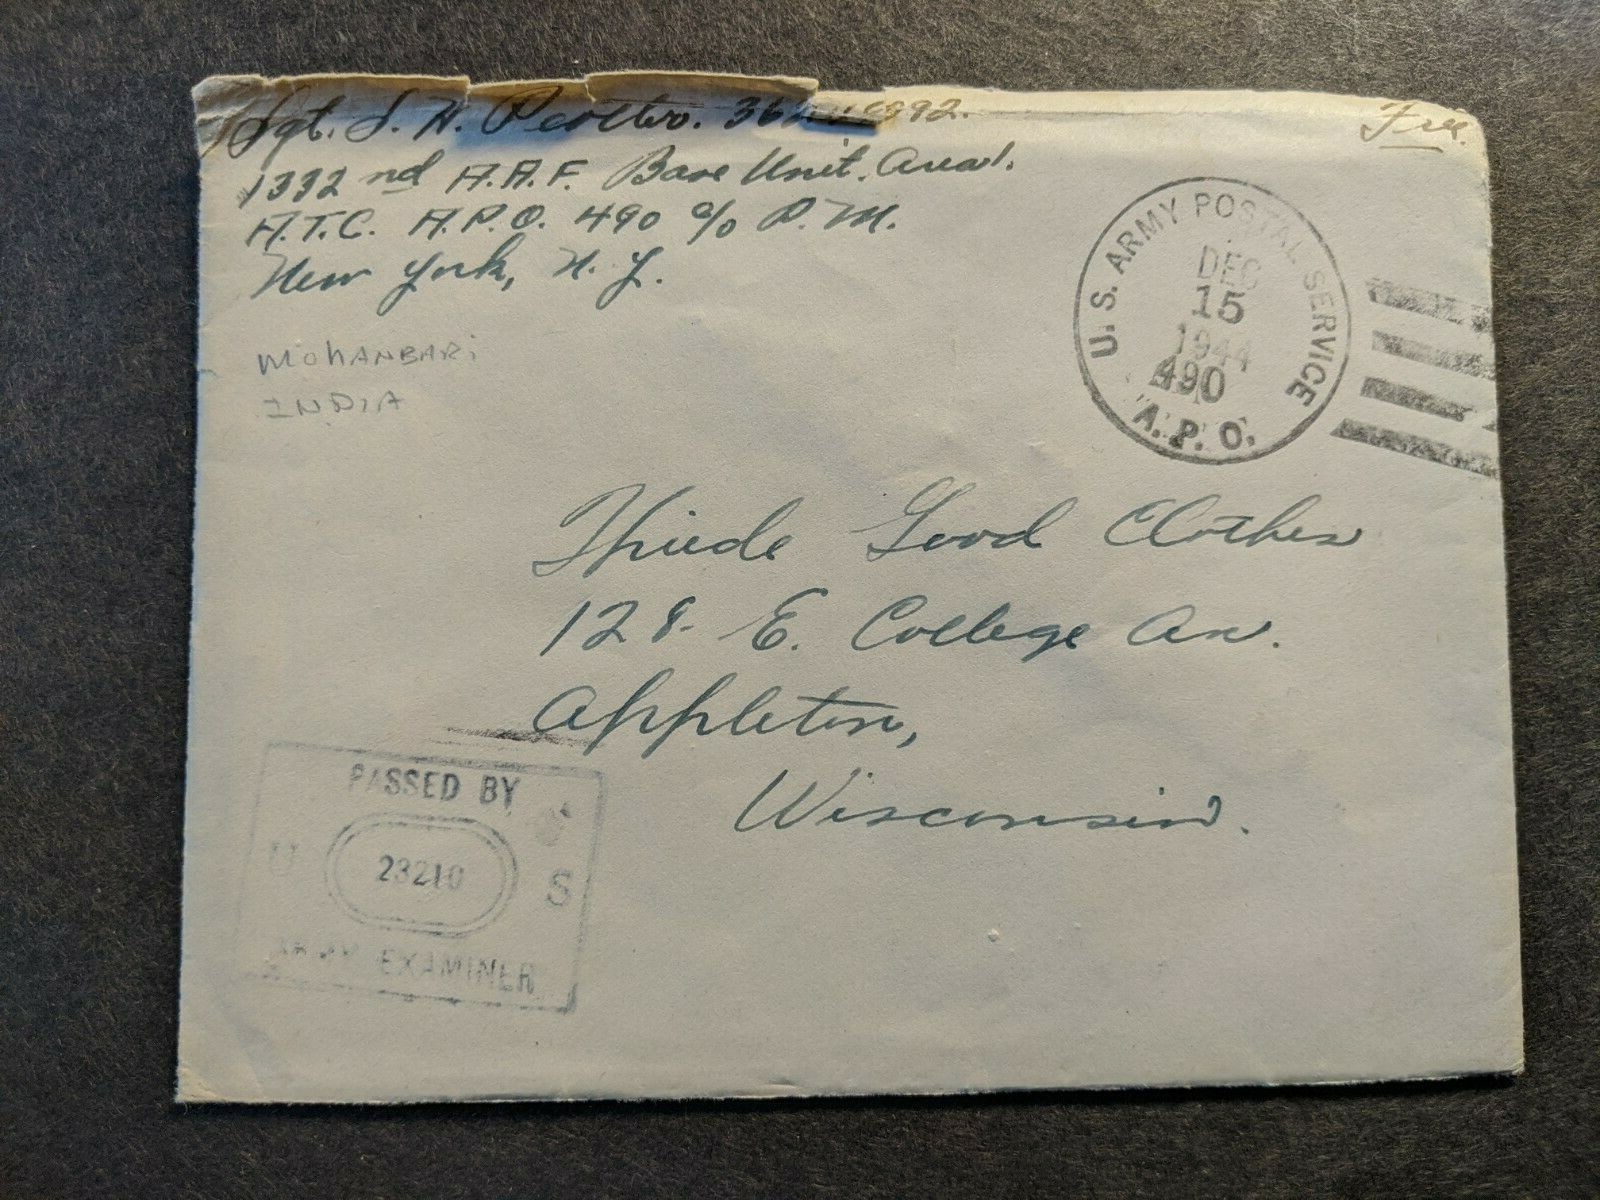 Sgt. S. H. 892.
Free.
1332 nd A.A.F. Base Unit. Area 1.
A.T.C. A.P.O. 490 c/o P.M.
New York, N.Y.
MOHANBARI
INDIA
U.S. ARMY POSTAL SERVICE
DEC
15
1944
490
A.P.O.
Thiede Good Clothes
128 E. College Av.
Appleton,
Wisconsin.
PASSED BY
U 23210 S
ARMY EXAMINER